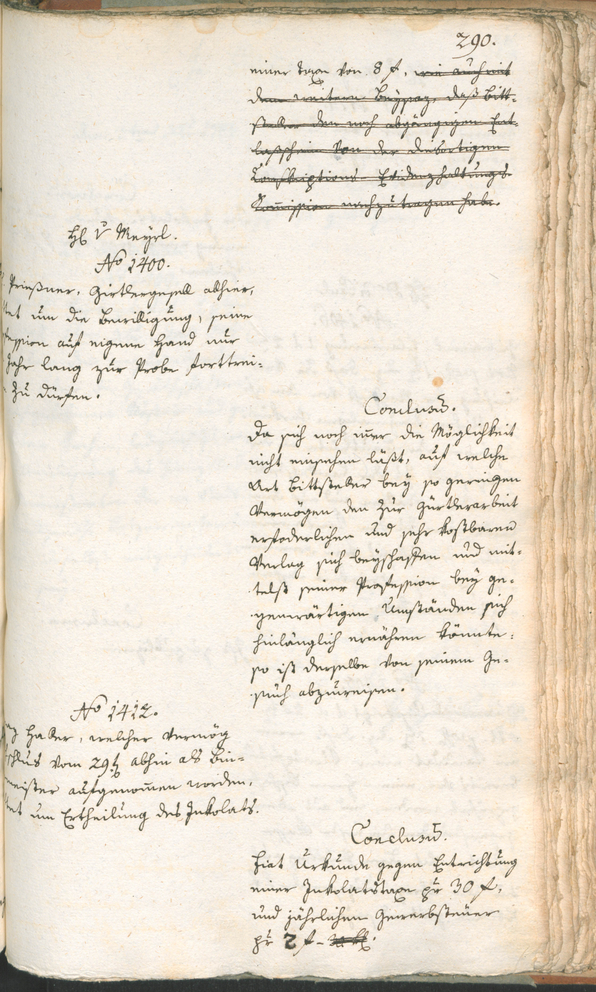 290.
einer Taxe von 8 f, wie auch mit
dem weitern Beysaz, daß Bitt-
steller den noch abgängigen Ent-
laßschein von der diesortigen
Conskriptions Evidenzhaltungs-
Kommission nachzutragen habe.
H V Meyrl.
No 1400.
Prießner, Gürtlergesell alhier,
um die Bewilligung, seine
auf eigene Hand nur
Jahr lang zur Probe forttrei-
zu dürfen.
Conclusũ.
Da sich noch im̃er die Möglichkeit
nicht einsehen läßt, auf welche
Art Bittsteller bey so geringen
Vermögen den zur Gürtlerarbeit
erfoderlichen und sehr kostbaren
Verlag sich beyschaffen und mit-
telst seiner Profession bey ge-
genwärtigen Umständen sich
hinlänglich ernähren könnte:
so ist derselbe von seinem Ge-
such abzuweisen.
No 1412.
Haker, welcher vermög
vom 29t abhin als Bin-
meister aufgenom̃en worden,
um Ertheilung des Inkolats.
Conclusũ.
Fiat Urkunde gegen Entrichtung
einer Inkolatstaxe pr 30 f,
und jährlichen Gewerbsteuer
pr 2 f -